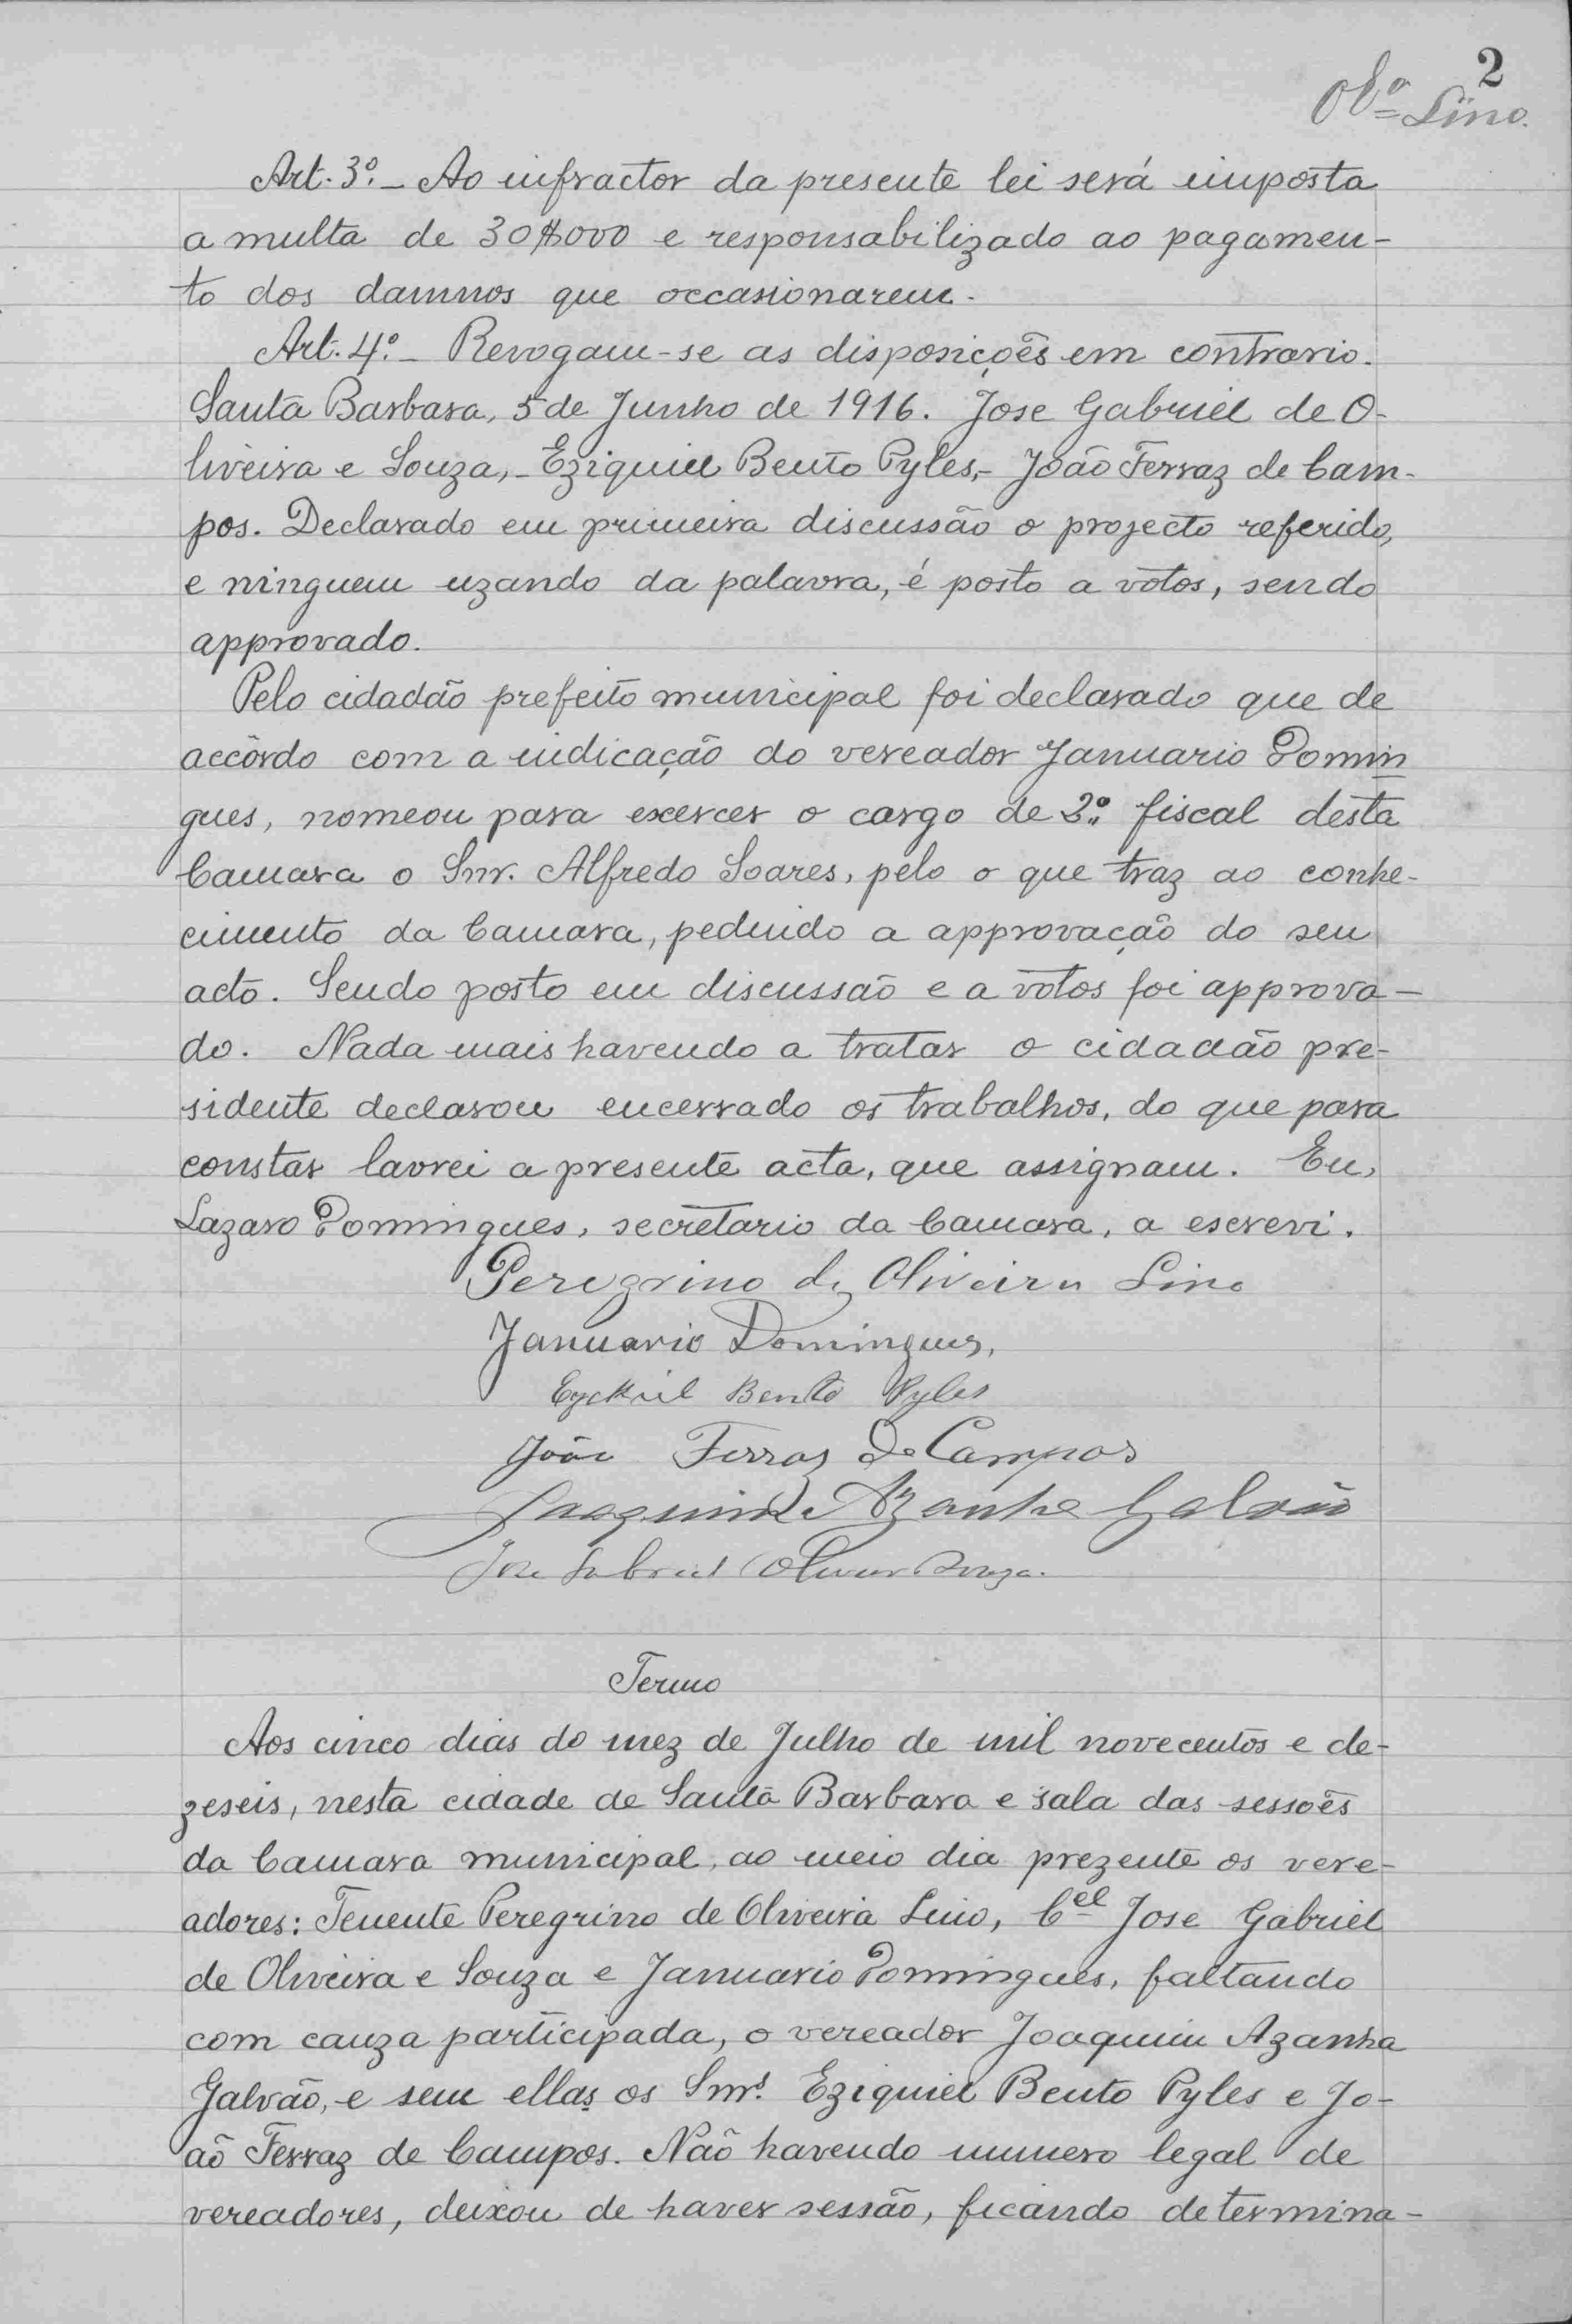 2
Ol.ª Lino.
Art. 3º. - Ao infractor da presente lei será imposta
a multa de 30$000 e responsabilizado ao pagamen-
to dos damnos que occasionarem.
Art. 4º. - Revogam-se as disposições em contrario.
Santa Barbara, 5 de Junho de 1916. Jose Gabriel de O-
liveira e Souza, - Eziquiel Bento Pyles, - João Ferraz de Cam-
pos. Declarado em primeira discussão o projecto referido,
e ninguem uzando da palavra, é posto a votos, sendo
approvado.
Pelo cidadão prefeito municipal foi declarado que de
accôrdo com a indicação do vereador Januario Domin
gues, nomeou para excercer o cargo de 2º. fiscal desta
Camara o Snr. Alfredo Soares, pelo o que traz ao conhe-
cimento da Camara, pedindo a approvação do seu
acto. Sendo posto em discussão e a votos foi approva-
do. Nada mais havendo a tratar o cidadão pre-
sidente declarou encerrado os trabalhos, do que para
constar lavrei a presente acta, que assignam. Eu,
Lazaro Domingues, secretario da Camara, a escrevi.
Peregrino de Oliveira Lino
Januario Domingues,
Ezekiel Bento Pyles
João Ferraz De Campos
Joaquim Azanha Galvão
Jose Gabriel Oliveira Souza.
Termo
Aos cinco dias do mez de Julho de mil novecentos e de-
zeseis, nesta cidade de Santa Barbara e sala das sessoẽs
da Camara municipal, ao meio dia prezente os vere-
adores: Tenente Peregrino de Oliveira Lino, Cel Jose Gabriel
de Oliveira e Souza e Januario Domingues, faltando
com cauza participada, o vereador Joaquim Azanha
Galvão, e sem ellas os Snrs. Eziquiel Bento Pyles e Jo-
aõ Ferraz de Campos. Não havendo numero legal de
vereadores, deixou de haver sessão, ficando determina-